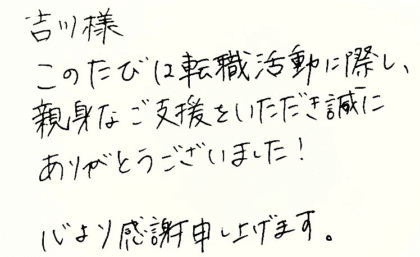 吉川様
このたびは転職活動に際し、
親身なご支援をいただき誠に
ありがとうございました！
心より感謝申し上げます。